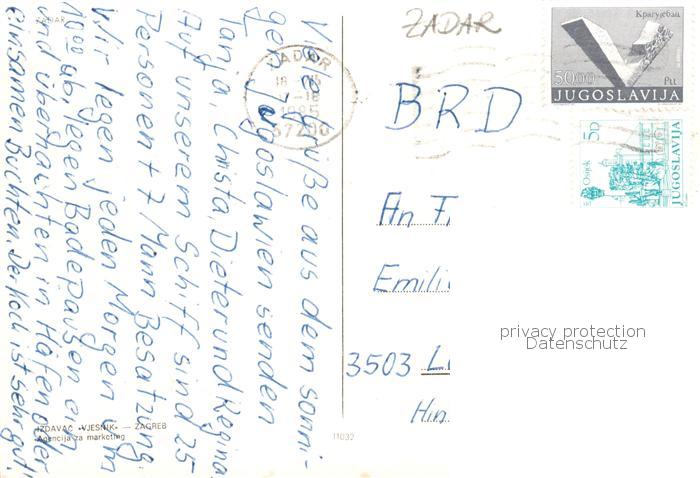 ZADAR
Viele Grüße aus dem sonni-
gen Jugoslawien senden
Tanja, Christa, Dieter und Regina.
Auf unserem Schiff sind 25
Personen + 7 Mann Besatzung.
Wir legen jeden Morgen um
10.00 ab, legen Badepausen ein
und übernachten in Häfen oder
einsamen Buchten. Der Koch ist sehr gut!
IZDAVAČ »VJESNIK« — ZAGREB
Agencija za marketing
11032
ZADAR
57200
ZADAR
Крагујевац
50.00
JUGOSLAVIJA
5D
Osijek
JUGOSLAVIJA
BRD
An
Emili
3503
privacy protection
Datenschutz